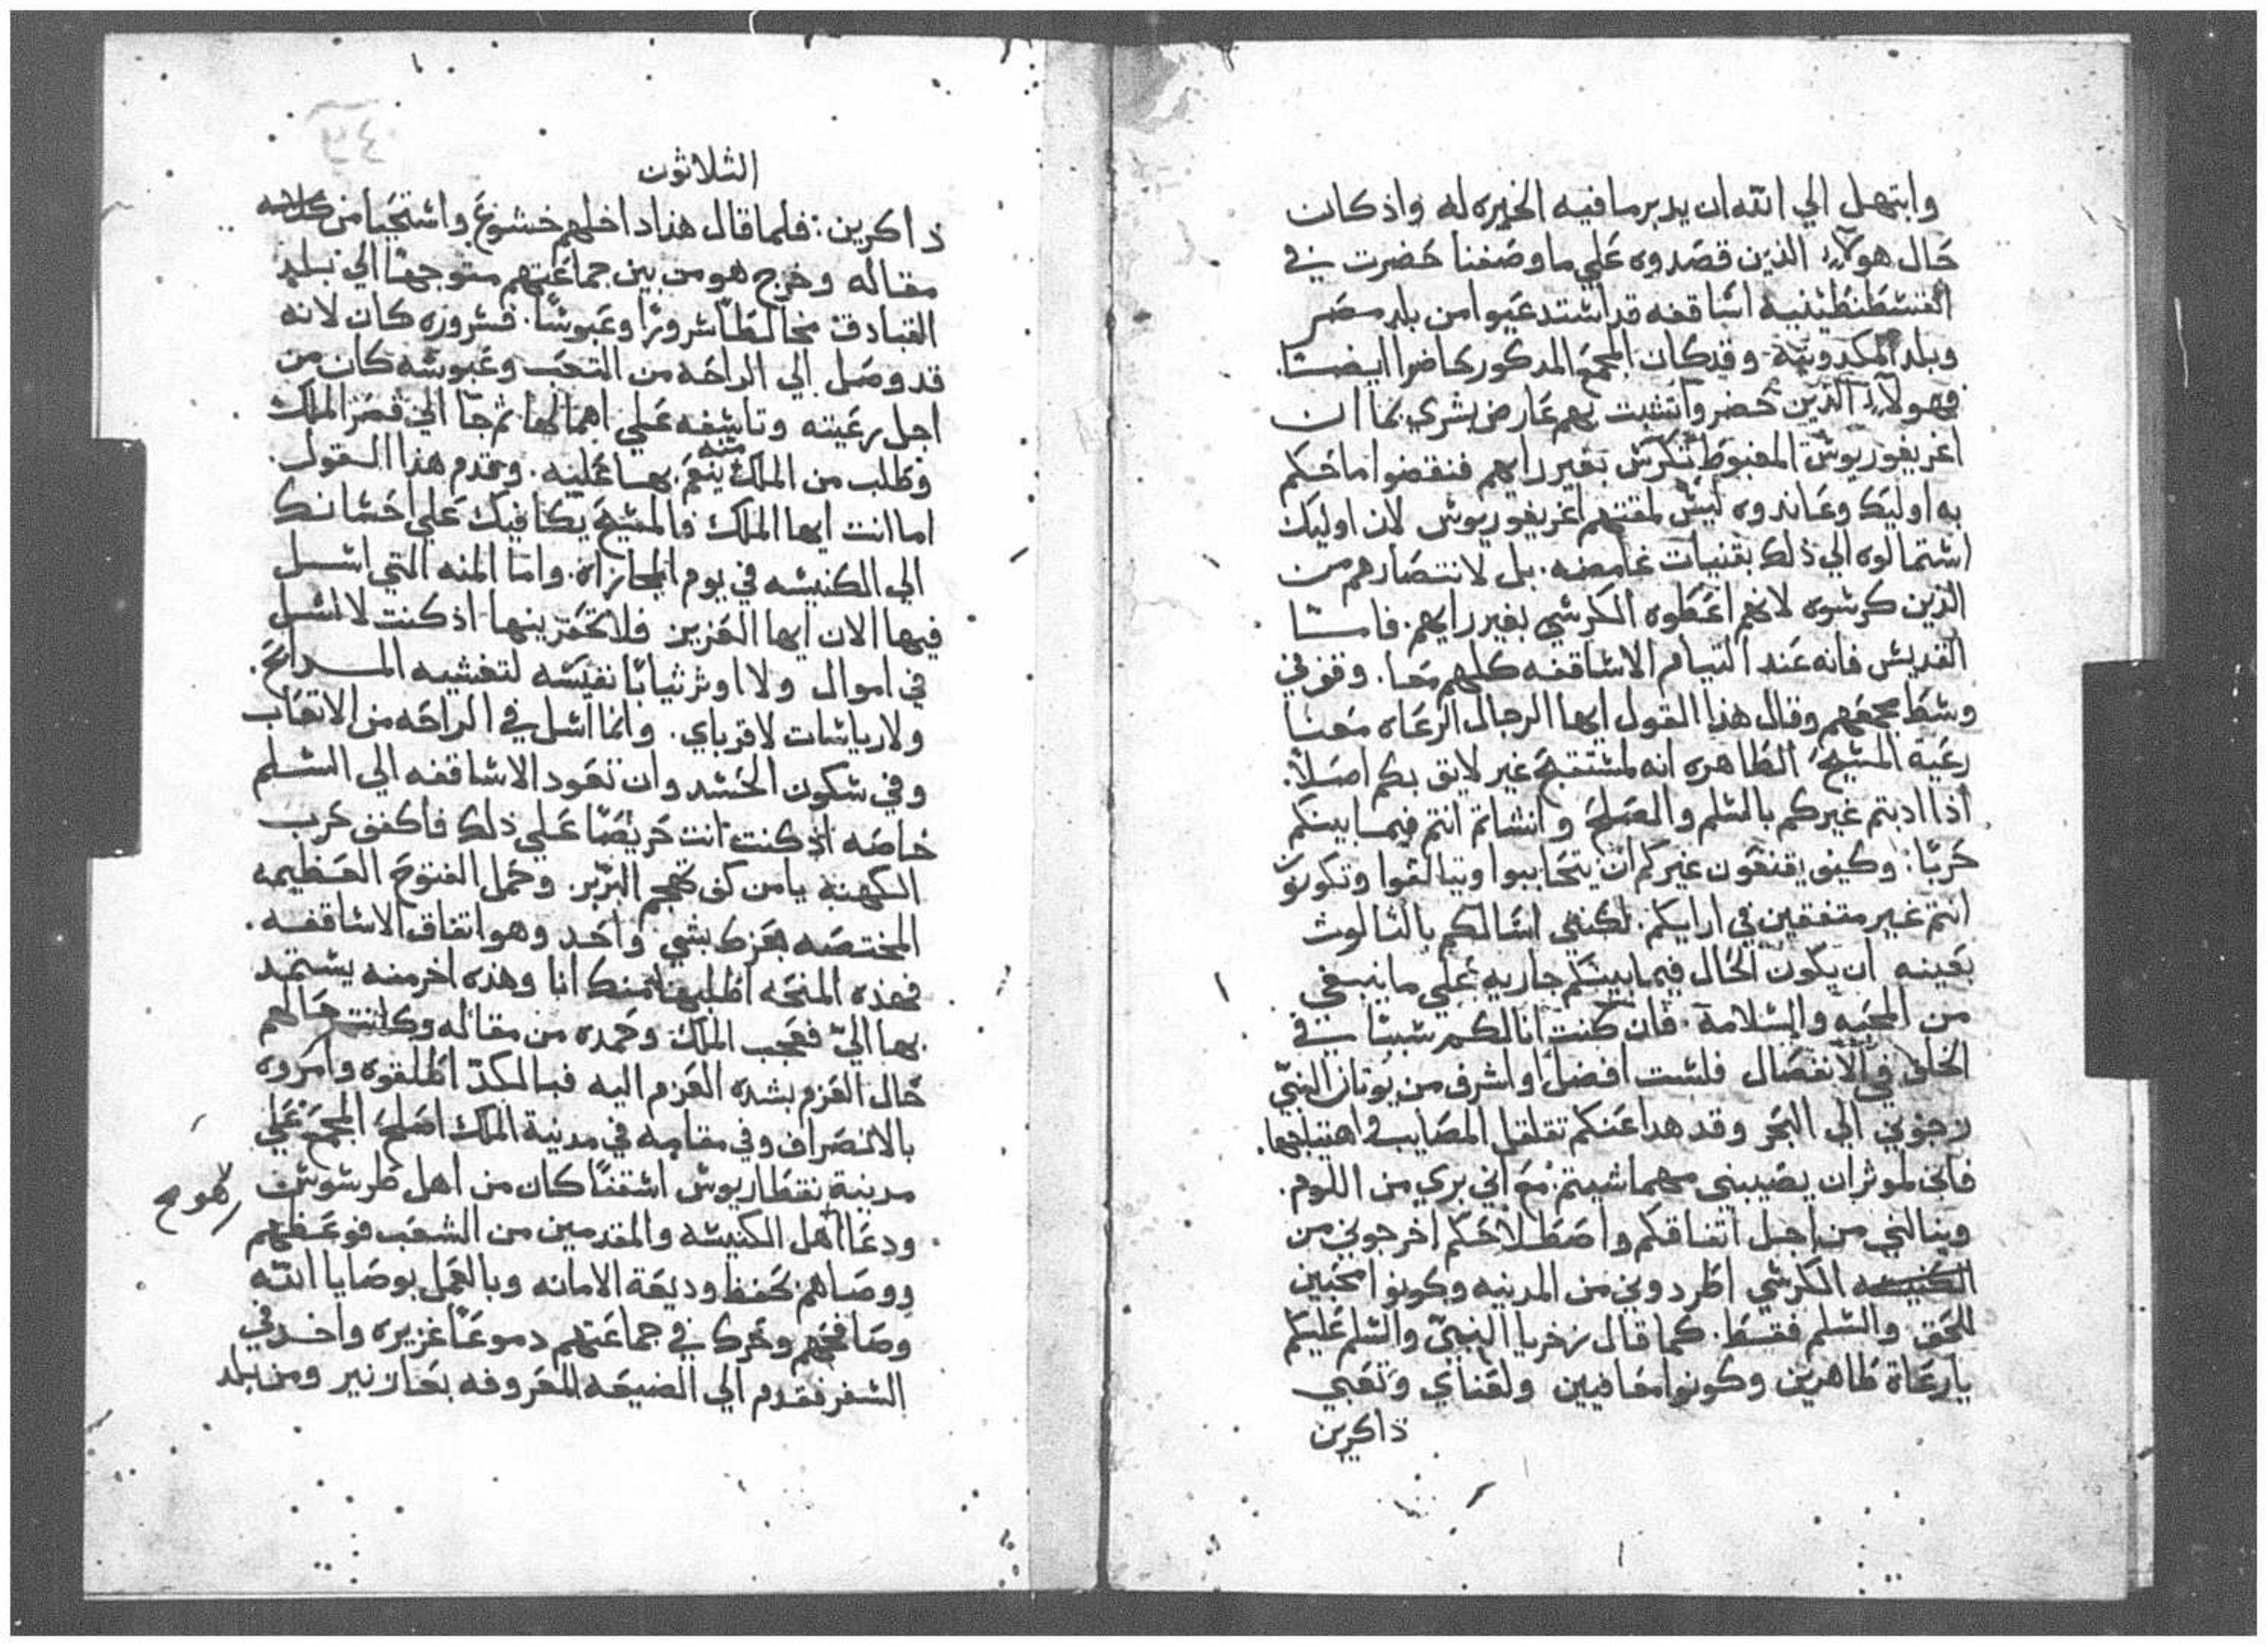 وابتهل الي الله ان يدبر ما فيه الخيره له واذ كان
حال هولاء الذين قصدوه علي ما وصفنا حضرت في
القسطنطينيه اساقفه قد استدعيوا من بلد مصر
وبلد المكدونيه وقد كان المجمع المدكور حاضرا ايضا.
فهولاء الذين حضروا تشبث بهم عارض بشري بما ان
اغريغوريوس المغبوط تكرس بغير رايهم فنقضوا ما حكم
به اوليك وعاندوه ليس لمقتهم اغريغوريوس لان اوليك
استمالوه الي ذلك بقنيات غامضه. بل لانتصارهم من
الذين كرسوه لانهم اعطوه الكرسي بغير رايهم. فاما
القديس فانه عند التيام الاساقفه كلهم معا. وقف في
وسط مجمعهم وقال هذا القول ايها الرجال الرعاه معنا
رعية المسيح الطاهره انه لمستقبح غير لايق بكم اصلا.
اذا ادبتم غيركم بالسلم والصلح وانشاتم انتم فيما بينكم
حربا. وكيف يقنعون غيركم ان يتحاببوا ويتالفوا وتكونون
انتم غير متفقين في ارايكم. لكنني اسالكم بالثالوث
بعينه ان يكون الحال فيما بينكم جاريه علي ما ينبغي
من المحبه والسلامة. فان كنت انا لكم سببا في
الخلف في الانفصال فلست افضل او اشرف من يونان النبي
زجوني الي البحر وقد هدا عنكم تقلقل المصايب في اهتياجها.
فانني لموثر ان يصيبني مهما شيتم. مع اني بري من اللوم.
وينالني من اجل اتفاقكم واصطلاحكم اخرجوني من
الكرسي اطردوني من المدينه وكونوا محبين
للحق والسلم فقط. كما قال زخريا النبي والسلم عليكم
يا رعاة طاهرين وكونوا معافيين ولعناي وتعبي
ذاكرين
الثلاثون
ذاكرين. فلما قال هذا داخلهم خشوع واستحيا من
مقاله وخرج هو من بين جماعتهم متوجها الي بلد
القبادق مخالطا سرورا وعبوسا. فسروره كان لانه
قد وصل الي الراحه من التعب وعبوسه كان من
اجل رعيته وتاسفه علي اهمالها ثم جا الي قصر الملك
وطلب من الملك منه ينعم بها عليه. وقدم هذا القول.
اما انت ايها الملك فالمسيح يكافيك علي احسانك
الي الكنيسه في يوم المجازاه. واما المنه التي اسل
فيها الان ايها العزيز فلا تحقرينها اذ كنت لا اسل
في اموال ولا اوثر ثيابا نفيسه لتغشيه المدابح.
ولا رياسات لاقرباي. وانما اسل في الراحه من الاتعاب
وفي سكون الحسد وان تعود الاساقفه الي السلم
خاصه اذ كنت انت حريصا علي ذلك فاكفف حرب
الكهنة يا من كف تهجم البربر. وكمل الفتوح العظيمه
المختصه بعزك بشي واحد وهو اتفاق الاساقفه.
فهذه المنحه اطلبها منك انا وهذه اخر منه يستمد
بها الي فعجب الملك وحمده من مقاله وكانت حالهم
حال العزم بشده العزم اليه فبالكد اطلقوه وامروه
بالانصراف وفي مقامه في مدينة الملك اصلح المجمع علي
مدينة نقطاريوس اسقفا كان من اهل طرسوس
ودعا اهل الكنيسه والمقدمين من الشعب فوعظهم
ووصاهم بحفظ وديعة الامانه وبالعمل بوصايا الله
وصافحهم وحرك في جماعتهم دموعا غزيره واخد في
السفر فقدم الي الضيعه المعروفه بعازنير ومن بلد